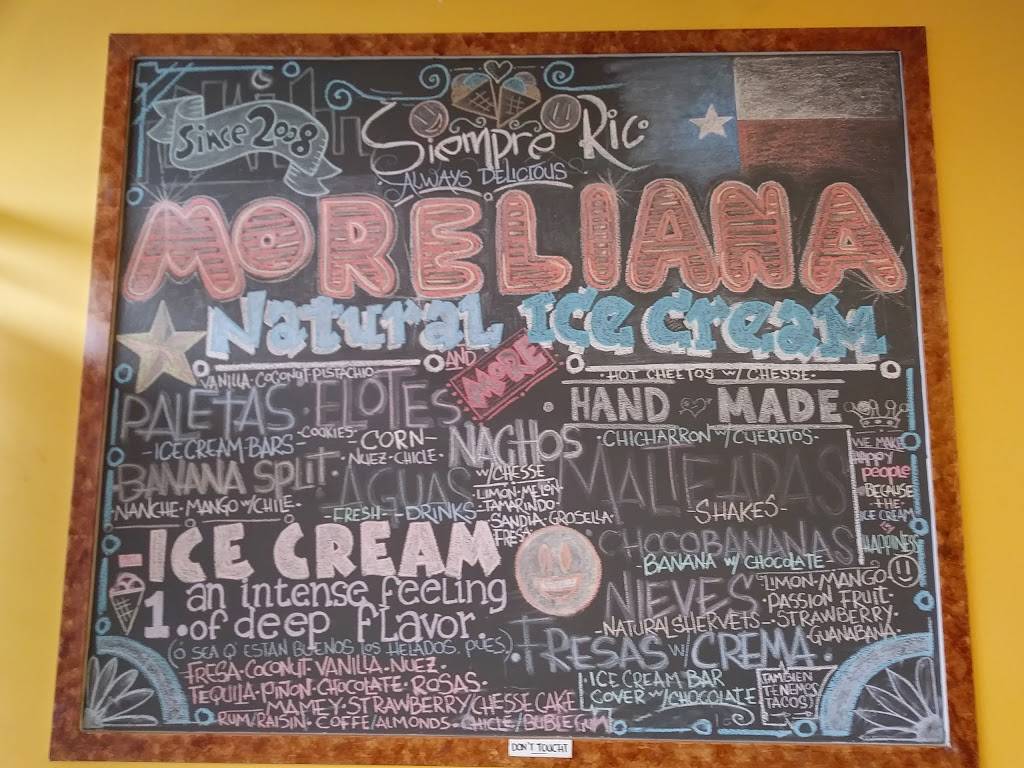 Since 2008
Siempre Rico
ALWAYS DELICIOUS
MORELIANA
Natural Ice Cream
AND MORE
VANILLA·COCONUT·PISTACHIO
PALETAS·ELOTES
-ICE CREAM BARS-
-COOKIES-
-CORN-
NUEZ·CHICLE·
BANANA SPLIT
NANCHE·MANGO w/CHILE·
AGUAS
-FRESH-DRINKS-
NACHOS
w/CHESSE
·LIMON·MELON
·TAMARINDO·
SANDIA·GROSELLA·
FRESA
·HOT CHEETOS w/CHESSE·
·HAND MADE
·CHICHARRON w/CUERITOS·
MALTEADAS
-SHAKES-
CHOCOBANANAS
BANANA w/ CHOCOLATE-
NIEVES
-NATURAL SHERVETS-
·LIMON·MANGO
·PASSION FRUIT·
-STRAWBERRY·
·GUANABANA·
WE MAKE
HAPPY
people
BECAUSE
THE
ICE CREAM
is
HAPPINESS
ICE CREAM
1. an intense feeling
of deep flavor.
(Ó SEA Q' ESTAN BUENOS LOS HELADOS, PUES)
·FRESAS w/ CREMA·
·FRESA·COCONUT·VANILLA·NUEZ·
TEQUILA·PIÑON·CHOCOLATE·ROSAS·
MAMEY·STRAWBERRY/CHESSE CAKE
RUM/RAISIN·COFFE/ALMONDS·CHICLE/BUBLE GUM
ICE CREAM BAR
COVER w/CHOCOLATE
TAMBIEN
TENEMOS
TACOS)
DON'T TOUCH!